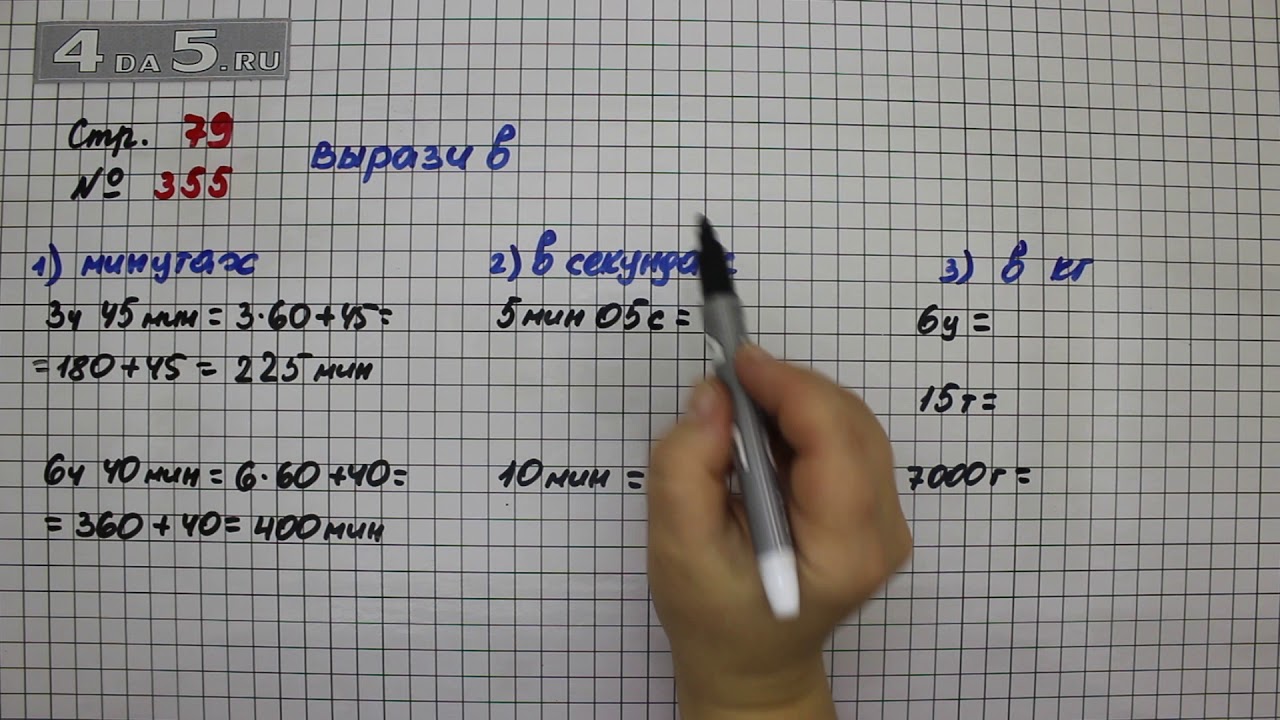 4DA5.RU
Стр. 79
№ 355
Вырази в
1) минутах
3ч 45 мин = 3·60+45=
=180+45 = 225 мин
6ч 40 мин = 6·60+40=
= 360 + 40 = 400 мин
2) в секундах
5 мин 05 с =
10 мин =
3) в кг
6ц =
15т=
7000г =